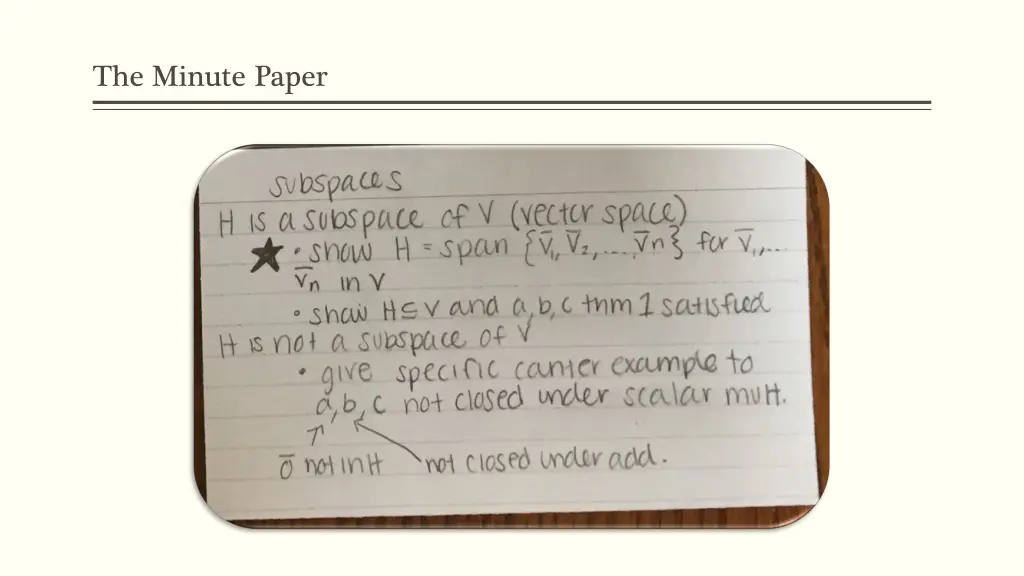 The Minute Paper
subspaces
H is a subspace of V (vector space)
★ • show H = span {v̄₁, v̄₂, ..., v̄n} for v̄₁, ...
v̄n in V
• show H ⊆ V and a, b, c thm 1 satisfied
H is not a subspace of V
• give specific counter example to
a, b, c not closed under scalar mult.
0̄ not in H not closed under add.